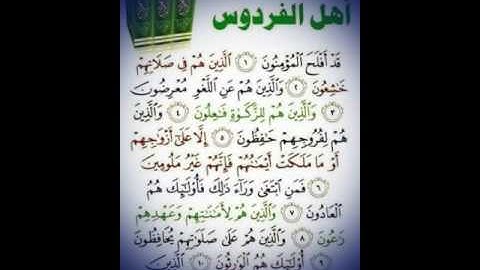 أهل الفردوس
قَدْ أَفْلَحَ الْمُؤْمِنُونَ ١ الَّذِينَ هُمْ فِي صَلَاتِهِمْ
خَاشِعُونَ ٢ وَالَّذِينَ هُمْ عَنِ اللَّغْوِ مُعْرِضُونَ
٣ وَالَّذِينَ هُمْ لِلزَّكَوٰةِ فَاعِلُونَ ٤ وَالَّذِينَ
هُمْ لِفُرُوجِهِمْ حَافِظُونَ ٥ إِلَّا عَلَىٰ أَزْوَاجِهِمْ
أَوْ مَا مَلَكَتْ أَيْمَانُهُمْ فَإِنَّهُمْ غَيْرُ مَلُومِينَ
٦ فَمَنِ ابْتَغَىٰ وَرَاءَ ذَٰلِكَ فَأُولَٰئِكَ هُمُ
الْعَادُونَ ٧ وَالَّذِينَ هُمْ لِأَمَانَاتِهِمْ وَعَهْدِهِمْ
رَاعُونَ ٨ وَالَّذِينَ هُمْ عَلَىٰ صَلَوَاتِهِمْ يُحَافِظُونَ
٩ أُولَٰئِكَ هُمُ الْوَارِثُونَ ١٠ الَّذِينَ